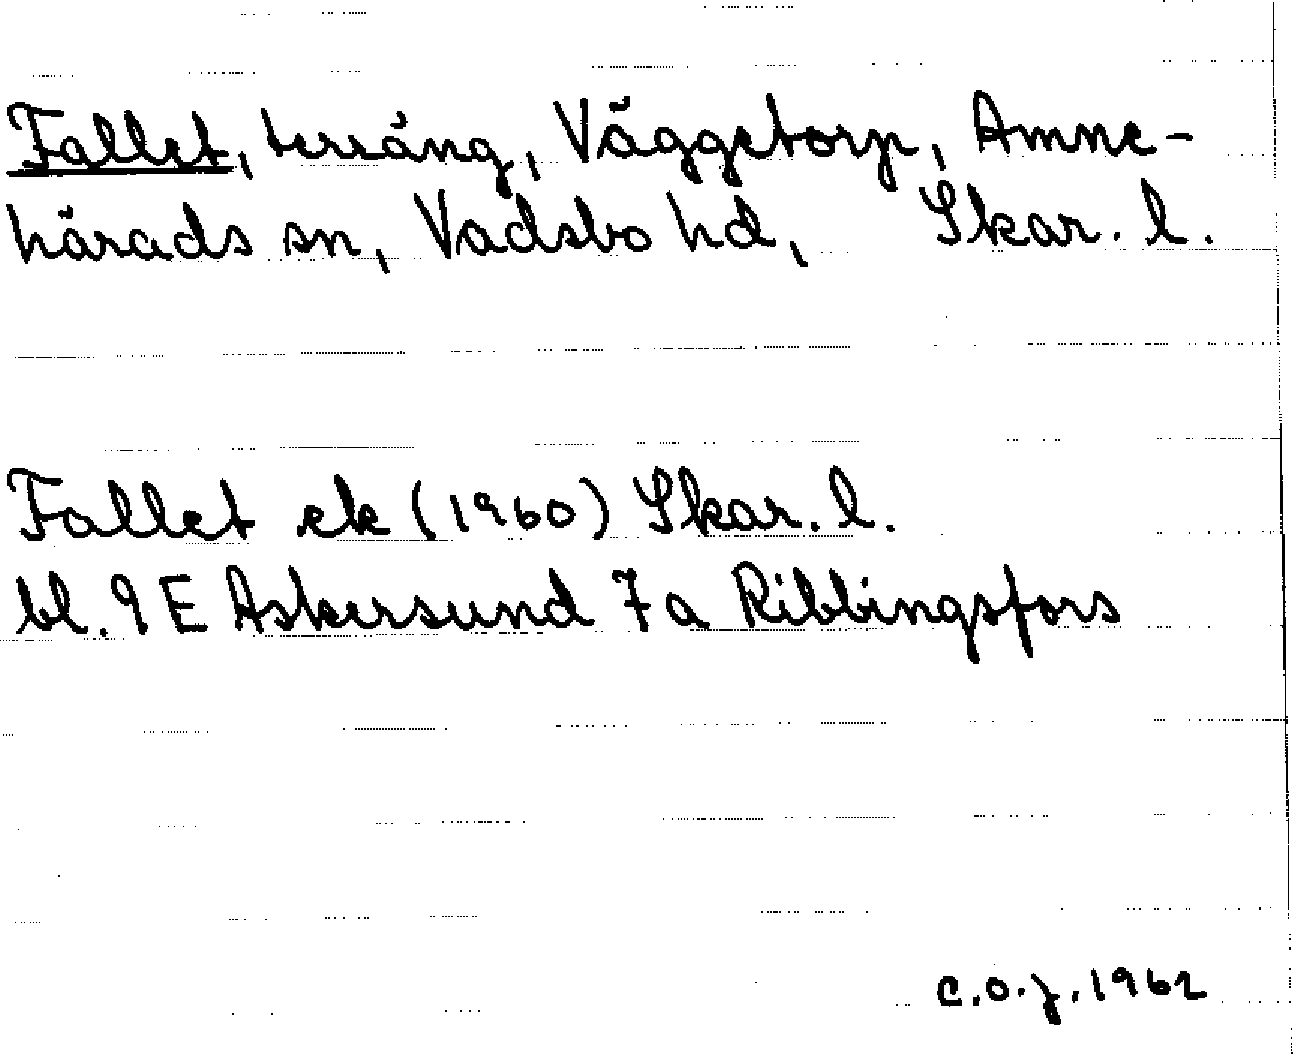 Fallet, terräng, Väggetorp, Amne-
härads sn, Vadsbo hd, Skar. l.
Fallet ek (1960) Skar. l.
bl. 9 E Askersund 7 a Ribbingsfors
C.O.J. 1962